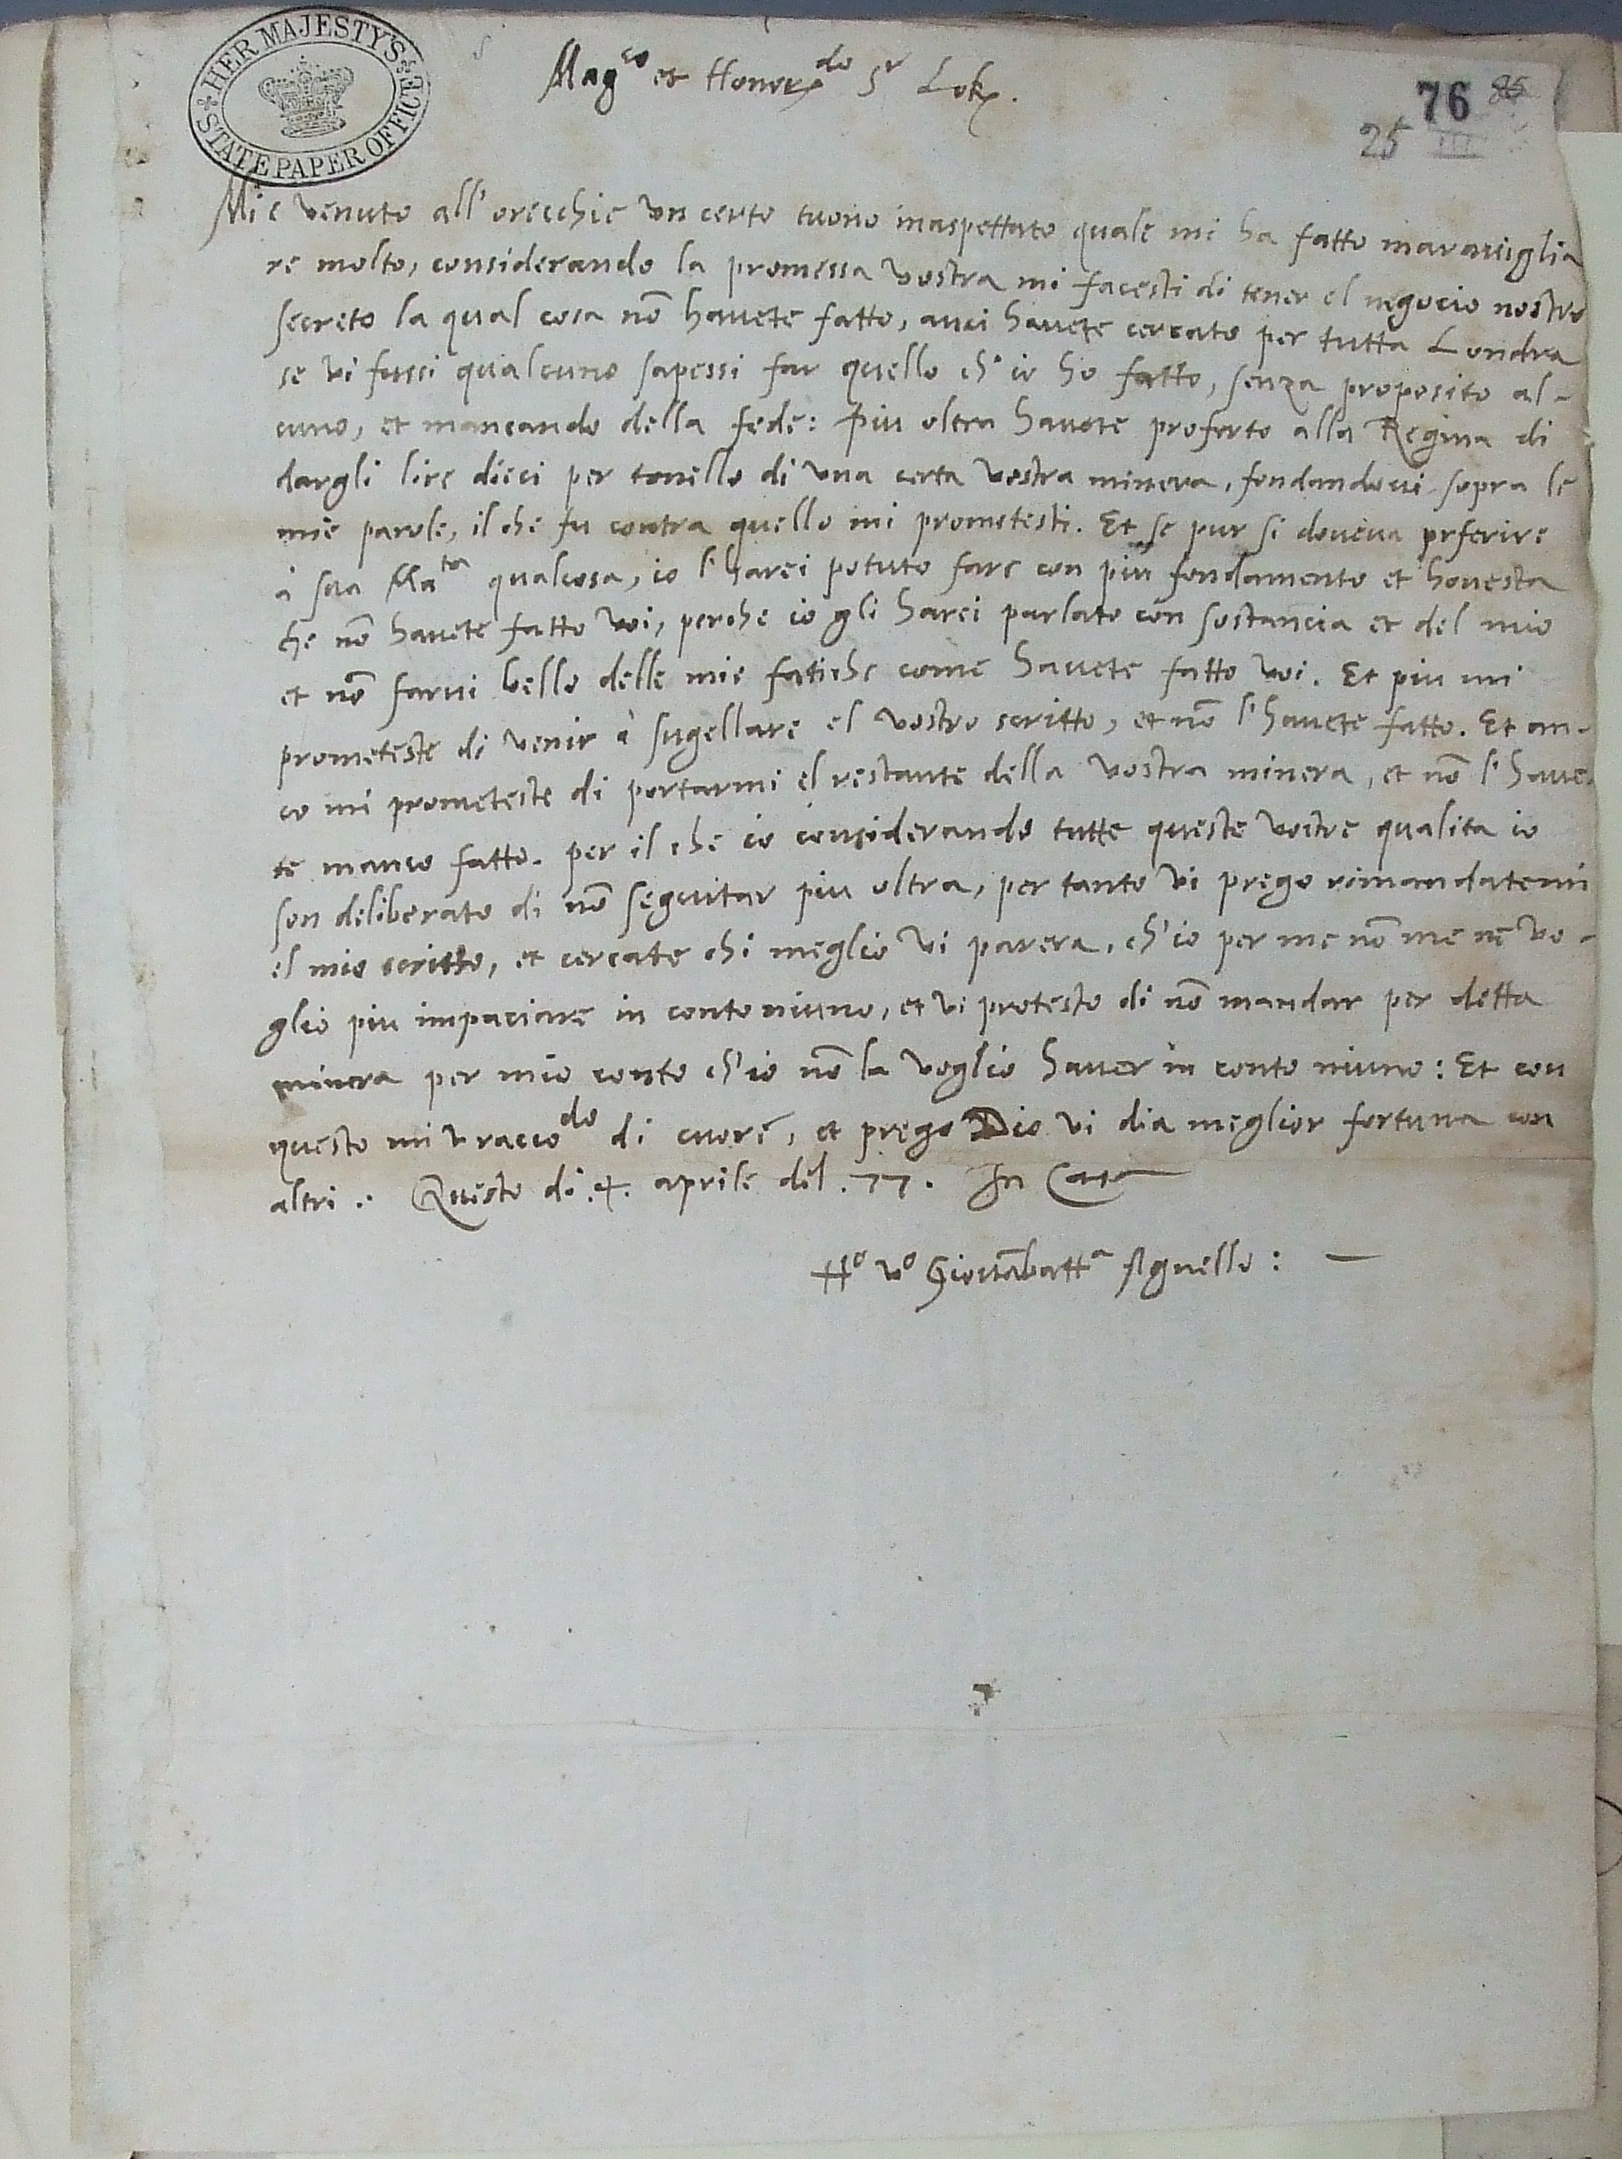 HER MAJESTY'S STATE PAPER OFFICE
76
25
Mag.co et Honor.do Sr Lok.
Mi e venuto all'orecchie un certo tuono inaspettato quale mi ha fatto maraviglia
re molto, considerando la promessa vostra mi facesti di tener el negocio nostro
secreto la qual cosa nō havete fatto, anci havete cercato per tutta Londra
se vi fussi qualcuno sapessi far quello ch'io ho fatto, senza proposito al-
cuno, et mancando della fede: piu oltra havete proferto alla Regina di
dargli lire dieci per tonello di una certa vostra minera, fondandovi sopra le
mie parole, il che fu contra quello mi prometesti. Et se pur si doveva prferire
à sua Mata qualcosa, io l'harei potuto fare con piu fondamento et honesta
che nō havete fatto voi, perche io gli harei parlato con sostancia et del mio
et nō farvi bello delle mie fatiche come havete fatto voi. Et piu mi
prometeste di venir à sugellare el vostro scritto, et nō l'havete fatto. Et an-
co mi prometeste di portarmi el restante della vostra minera, et nō l'have-
te manco fatto. per il che io considerando tutte queste vostre qualita io
son deliberato di nō seguitar piu oltra, per tanto vi prego rimandatemi
el mio scritto, et cercate chi meglio vi parera, ch'io per me nō me ne vo-
glio piu impaciare in conto niuno, et vi protesto di nō mandar per detta
minera per mio conto ch'io nō la voglio haver in conto niuno: Et con
questo mi vraccodo di cuore, et prego Dio vi dia meglior fortuna con
altri. Questo di .4. aprile del .77. In Cata
Ho vo Giovābatta Agnello: